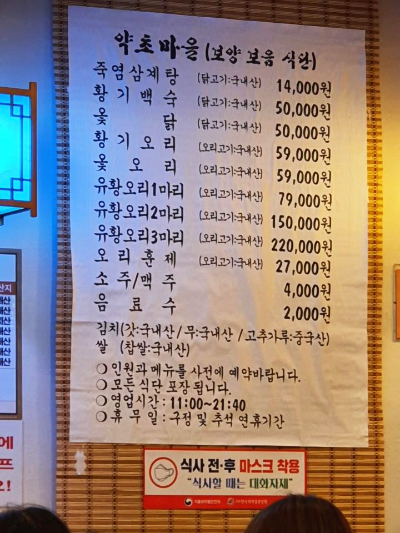 약초마을 (보양 보음 식단)
죽염삼계탕 (닭고기:국내산) 14,000원
황기백숙 (닭고기:국내산) 50,000원
옻 닭 (닭고기:국내산) 50,000원
황기오리 (오리고기:국내산) 59,000원
옻오리 (오리고기:국내산) 59,000원
유황오리1마리 (오리고기:국내산) 79,000원
유황오리2마리 (오리고기:국내산) 150,000원
유황오리3마리 (오리고기:국내산) 220,000원
오리훈제 (오리고기:국내산) 27,000원
소주/맥주 4,000원
음료수 2,000원
김치(갓:국내산 / 무:국내산 / 고추가루:중국산)
쌀 (찹쌀:국내산)
○ 인원과 메뉴를 사전에 예약바랍니다.
○ 모든 식단 포장 됩니다.
○ 영업시간 : 11:00~21:40
○ 휴무일 : 구정 및 추석 연휴기간
식사 전·후 마스크 착용
"식사할 때는 대화자제"